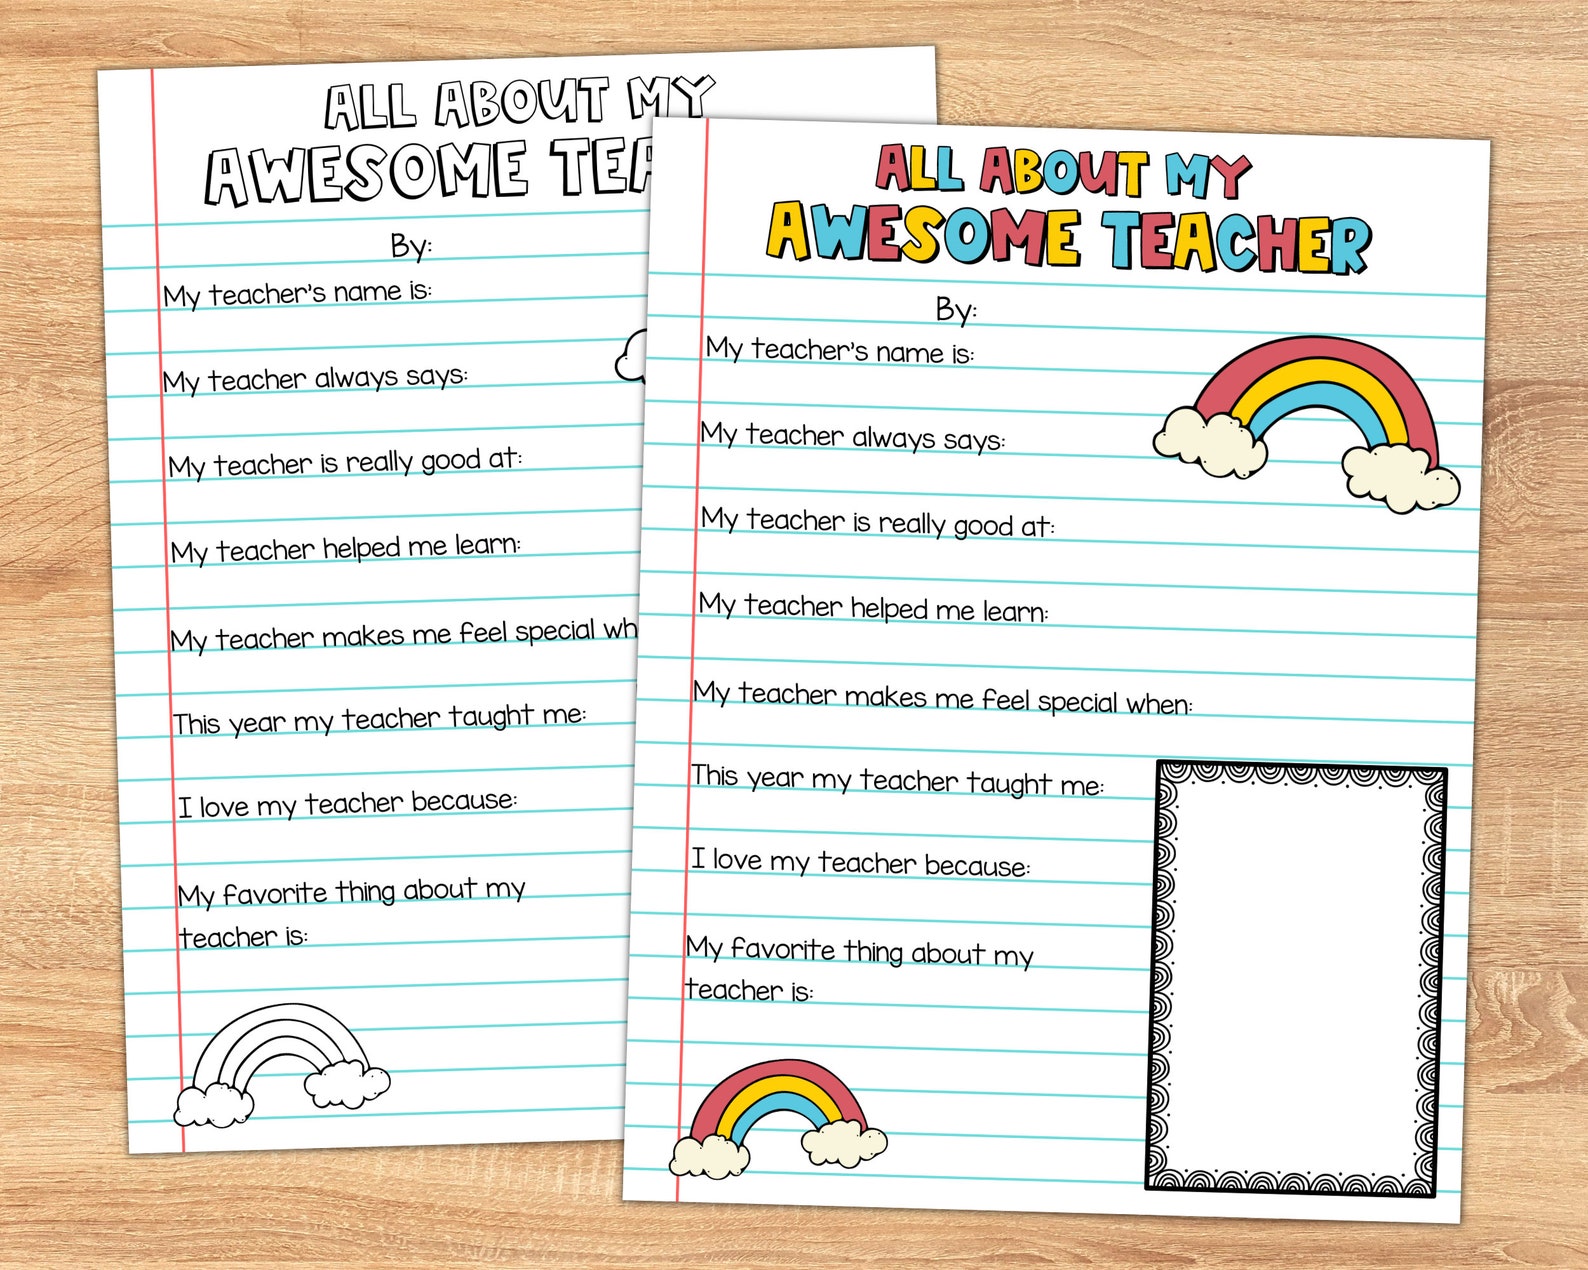 ALL ABOUT MY
AWESOME
By:
My teacher's name is:
My teacher always says:
My teacher is really good at:
My teacher helped me learn:
My teacher makes me feel special
This year my teacher taught me:
I love my teacher because:
My favorite thing about my
teacher is:
ALL ABOUT MY
AWESOME TEACHER
By:
My teacher's name is:
My teacher always says:
My teacher is really good at:
My teacher helped me learn:
My teacher makes me feel special when:
This year my teacher taught me:
I love my teacher because:
My favorite thing about my
teacher is: